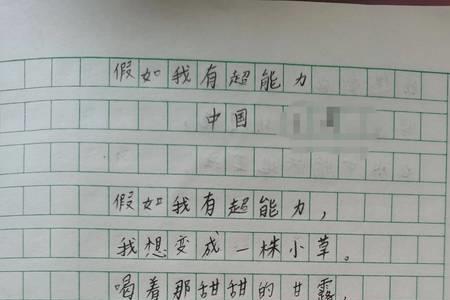 假如我有超能力
中国
假如我有超能力，
我想变成一株小草。
喝着那甜甜的甘露，